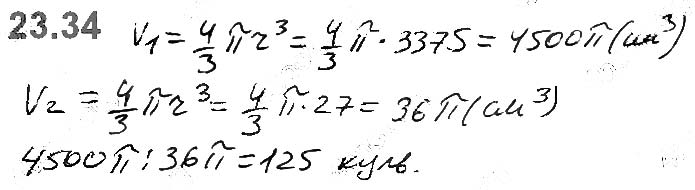 23.34 V₁ = 4/3 πr³ = 4/3 π · 3375 = 4500π (см³)
V₂ = 4/3 πr³ = 4/3 π · 27 = 36π (см³)
4500π : 36π = 125 куль.